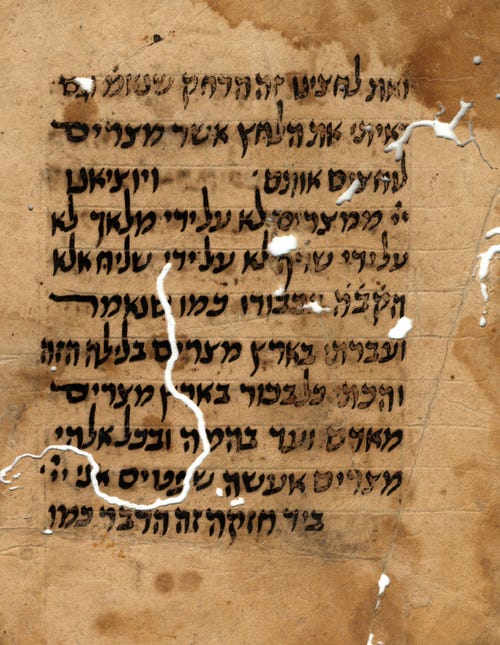 ואת לחצינו זה הדחק שנאמ׳ וגם
ראיתי את הלחץ אשר מצרים
לחצים אותם׃ ויוציאנו
ייי ממצרים לא על ידי מלאך לא
על ידי שרף לא על ידי שליח אלא
הקבה בכבודו כמו שנאמר
ועברתי בארץ מצרים בלילה הזה
והכתי כל בכור בארץ מצרים
מאדם ועד בהמה ובכל אלהי
מצרים אעשה שפטים אני ייי
ביד חזקה זה הדבר כמו